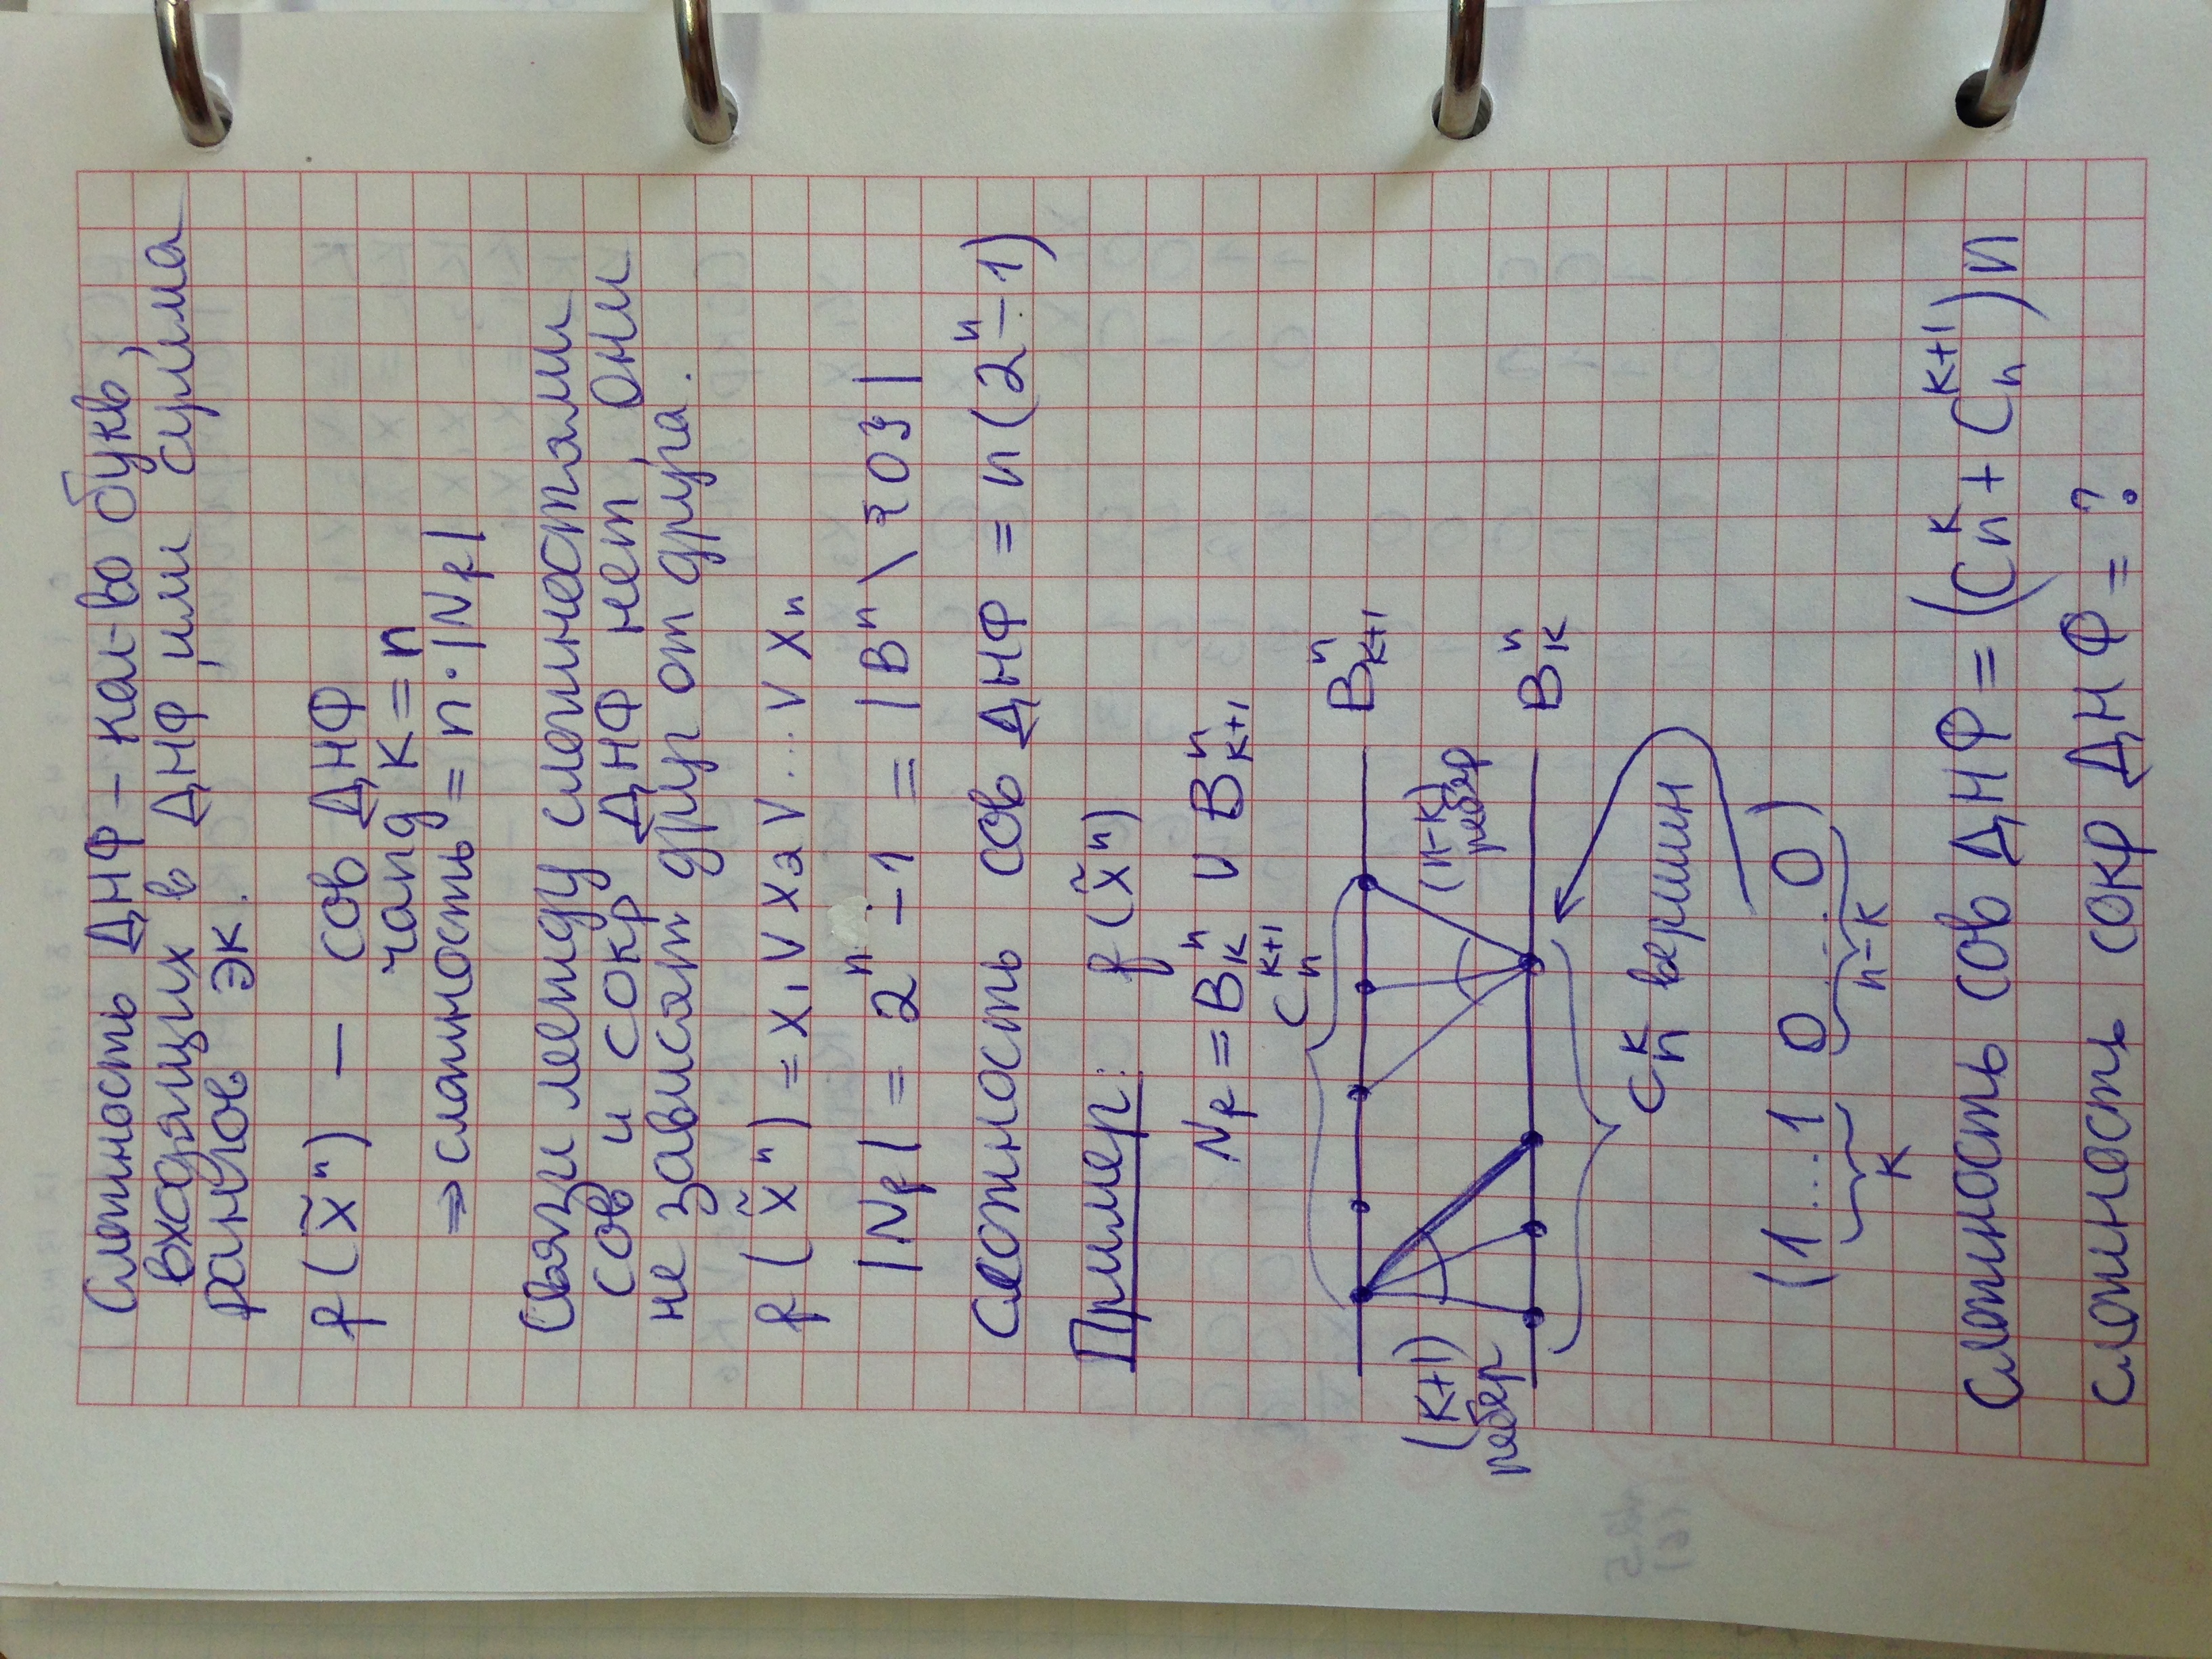 Сложность ДНФ – кол-во букв,
входящих в ДНФ, или сумма
рангов эк.
f(x̃ⁿ) — сов ДНФ
ранг K = n
⇒ сложность = n·|N_f|
Связи между сложностями
сов и сокр ДНФ нет, они
не зависят друг от друга.
f(x̃ⁿ) = x₁ ∨ x₂ ∨ ... ∨ xₙ
|N_f| = 2ⁿ – 1 = |Bⁿ \ {0}|
Сложность сов ДНФ = n(2ⁿ – 1)
Пример: f(x̃ⁿ)
N_f = Bₖⁿ ∪ Bₖ₊₁ⁿ
Cₙᵏ⁺¹
Bₖ₊₁ⁿ
(k+1) рёбер
(n-k) рёбер
Bₖⁿ
Cₙᵏ вершин
(1...1 0...0)
k n-k
Сложность сов ДНФ = (Cₙᵏ + Cₙᵏ⁺¹)n
Сложность сокр ДНФ = ?